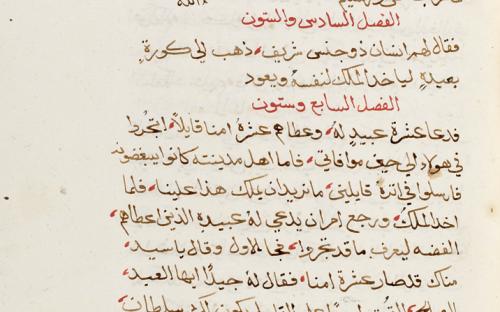 الفصل السادس والستون
فقال لهم انسان ذو جنس شريف، ذهب الي كورةٍ
بعيدةٍ لياخد الملك لنفسهُ ويعود
الفصل السابع وستون
فدعا عشرة عبيدٍ لهُ، وعطاهم عشرة امنا قايلاً، اتجُروا
في هولاء الي حين موافاتي، فاما اهل مدينته كانوا يبغضونه
فارسلوا في اثرهُ قايلين، ما نريد ان يملك هذا علينا، فلما
اخد الملك ورجع امر ان يدعي لهُ عبيده الذين اعطاهم،
الفضه ليعرف ما قد تجروا، فجا الاول وقال يا سيد،
مناك قد صار عشرة امنا، فقال لهُ جيدًا ايها العبد،
الصالح سلطان